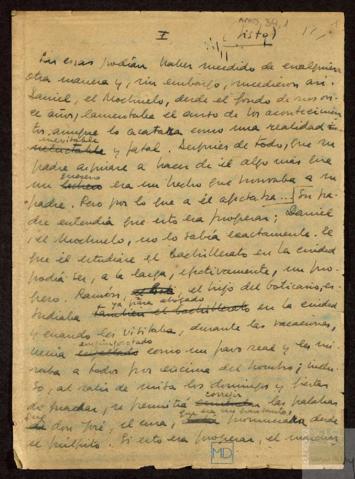 I
(listo)
Las cosas podían haber sucedido de cualquier
otra manera y, sin embargo, sucedieron así.
Daniel, el Mochuelo, desde el fondo de sus on-
ce años, lamentaba el curso de los acontecimien-
tos, aunque lo acatara como una realidad
inevitable
y fatal. Después de todo, que su
padre aspirara a hacer de él algo más que
un quesero era un hecho que honraba a su
padre. Pero por lo que a él afectaba... Su pa-
dre entendía que esto era progresar; Daniel,
el Mochuelo, no lo sabía exactamente. El
que él estudiase el Bachillerato en la ciudad
podía ser, a la larga, efectivamente, un pro-
greso. Ramón, el hijo del boticario, es-
tudiaba ya para abogado en la ciudad
y cuando les visitaba, durante las vacaciones,
venía empingorotado como un pavo real y les mi-
raba a todos por encima del hombro; inclu-
so, al salir de misa los domingos y fiestas
de guardar, se permitía corregir las palabras
que don José, el cura, que era un gran santo, pronunciara desde
el púlpito. Si esto era progresar, el marchar
MD